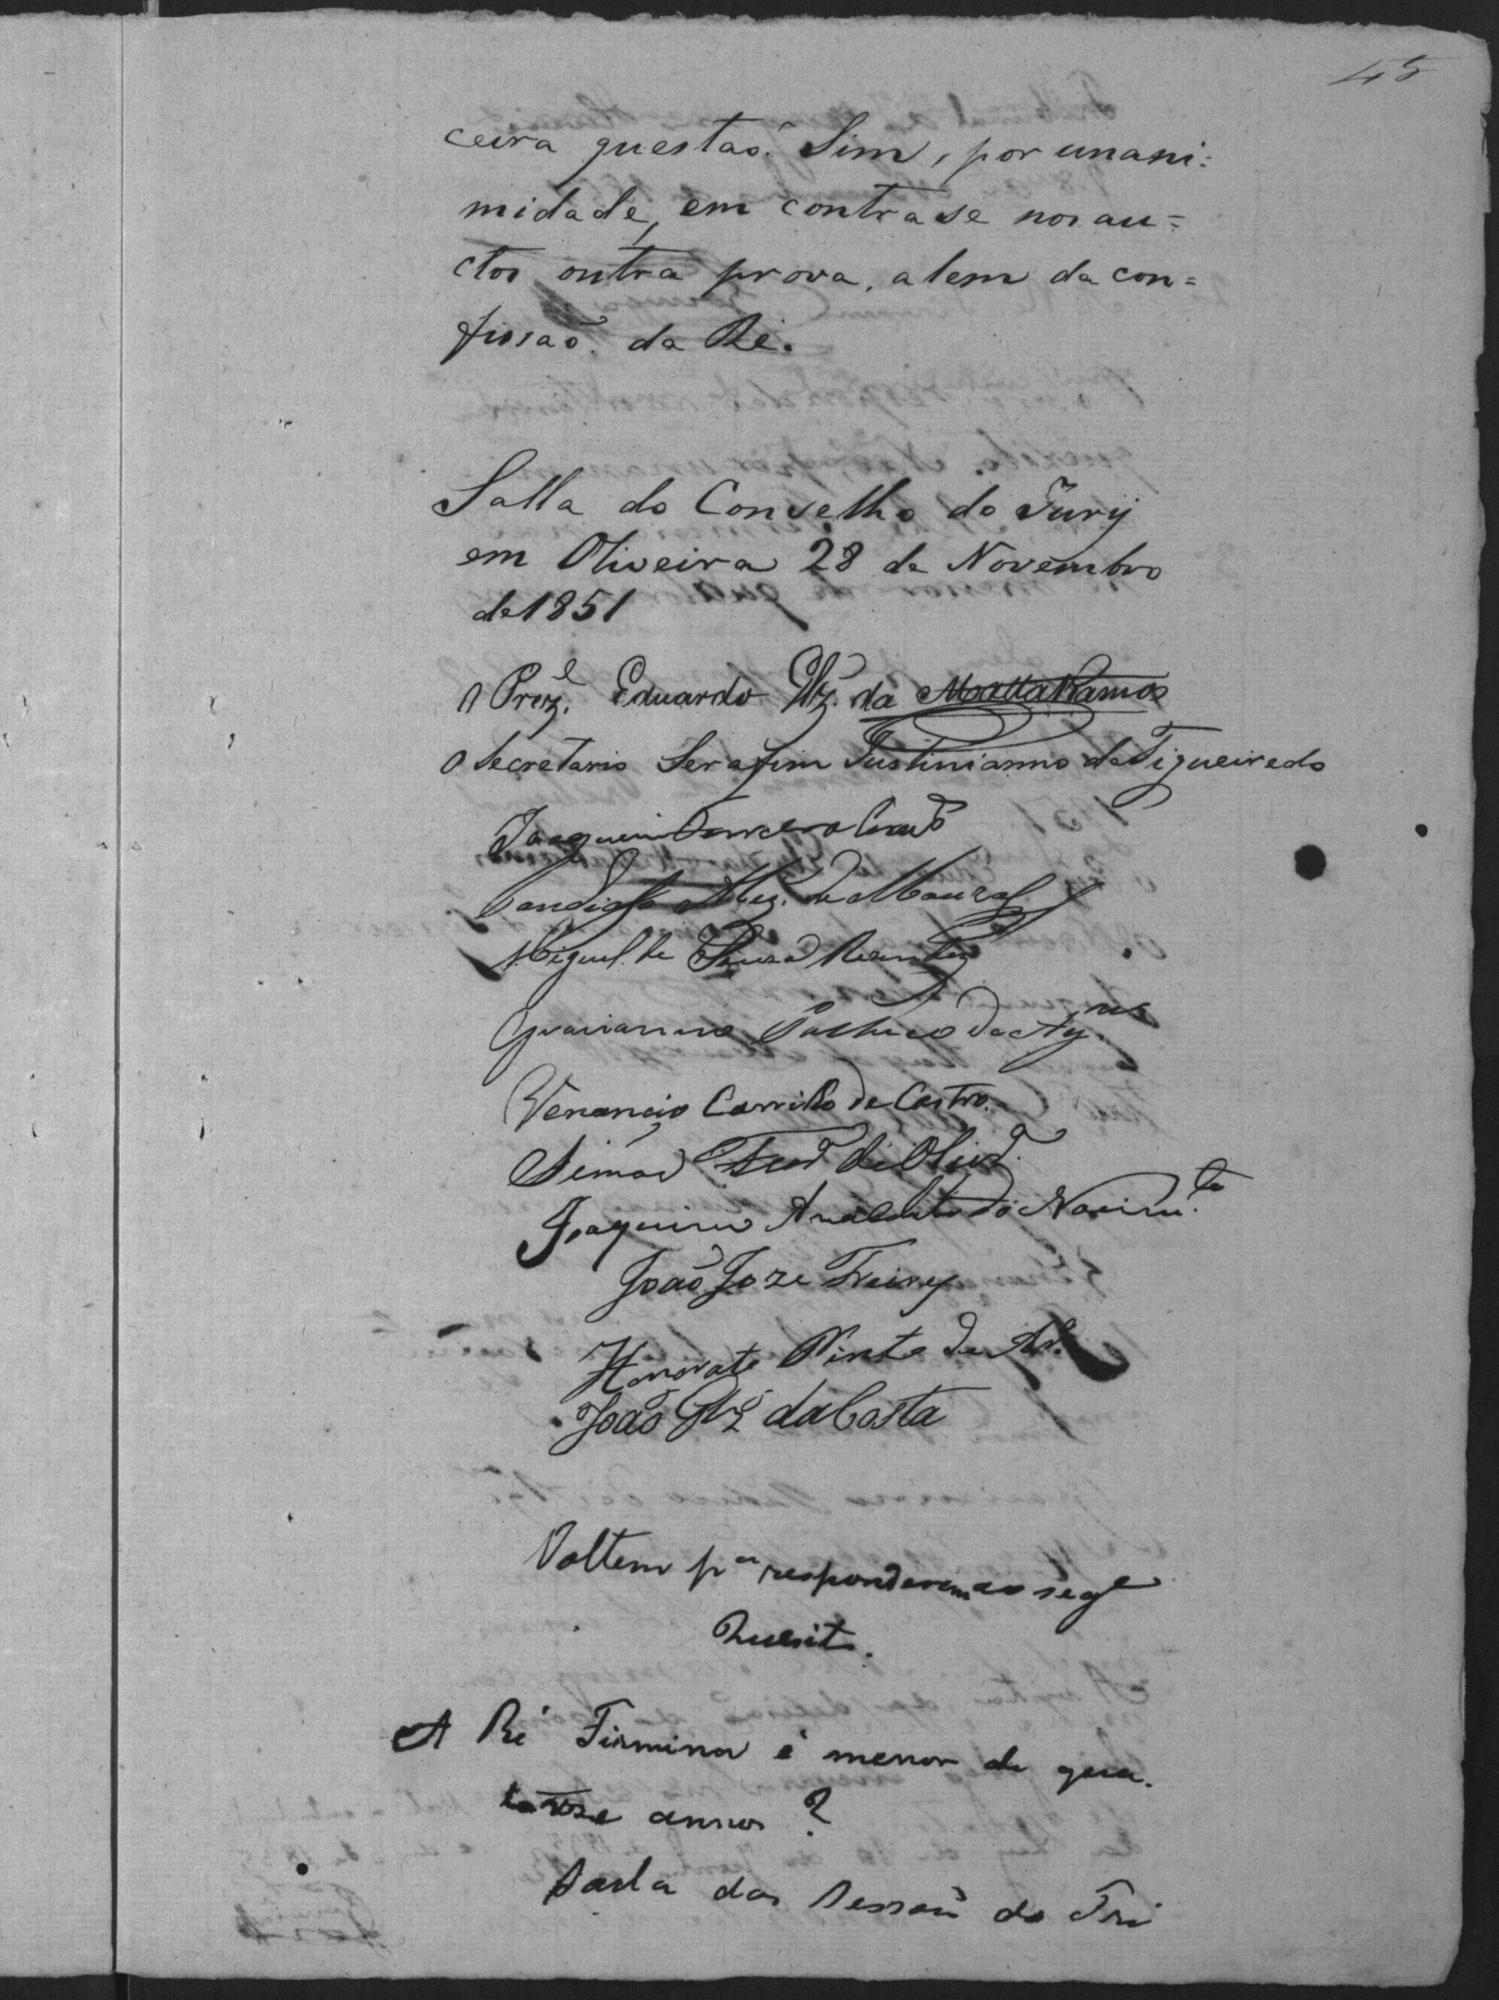 45
ceira questaõ. Sim, por unani=
midade, em contrase nos au=
ctos outra prova, alem da con=
fissaõ da Ré.
Salla do Conselho do Jury
em Oliveira 28 de Novembro
de 1851
O Prez.e Eduardo Glz. da Motta Ramos
O Secretario Serafim Justinianno de Figueiredo
Joaquim
Candido Alz. de Moura
Miguel de Souza Rezende
Pacheco de
Venancio Carrilho de Castro.
Simaõ de Oliv.ra
Joaquim Anacleto do Nacim.to
João Joze Freire
Honorato Pinto de
João Glz da Costa
Voltem p.a responderem ao seg.e
Quesito.
A Ré Firmina é menor de qua-
torze annos?
Sala das Sessoẽs do Tri